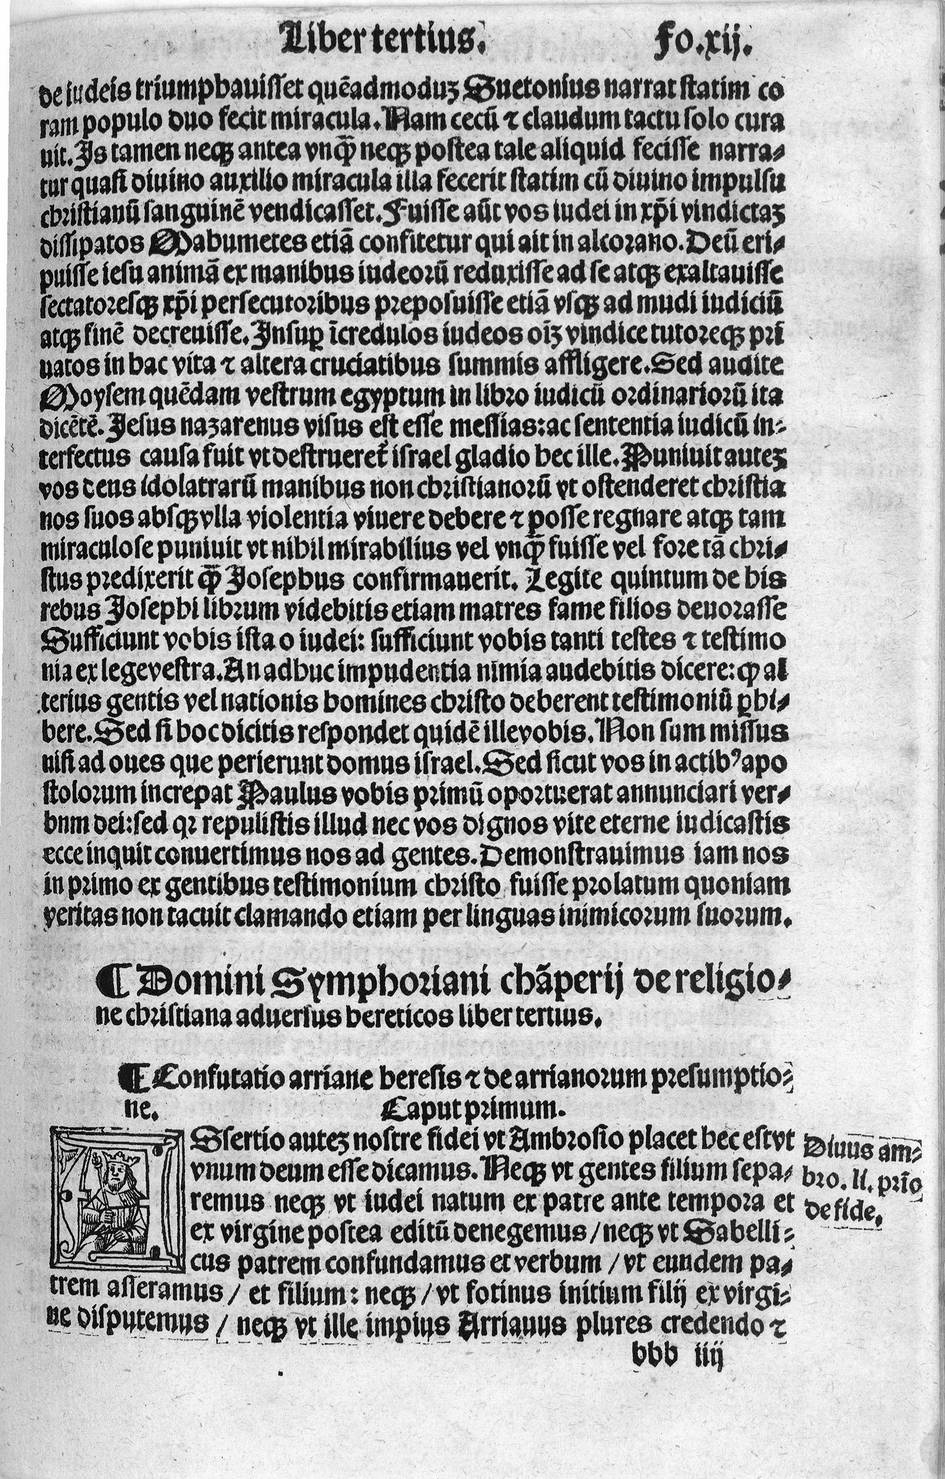 Liber tertius. Fo.xij.
de iudeis triumphauisset quẽadmoduz Suetonius narrat statim co
ram populo duo fecit miracula. Nam cecũ ⁊ claudum tactu solo cura
uit. Is tamen neqꝫ antea vnqꝫ̃ neqꝫ postea tale aliquid fecisse narra⸗
tur quasi diuino auxilio miracula illa fecerit statim cũ diuino impulsu
christianũ sanguinẽ vendicasset. Fuisse aũt vos iudei in xp̃i vindictaz
dissipatos Mahumetes etiã confitetur qui ait in alcorano. Deũ eri⸗
puisse iesu animã ex manibus iudeorũ reduxisse ad se atqꝫ exaltauisse
sectatoresqꝫ xp̃i persecutoribus preposuisse etiã vsqꝫ ad mudi iudiciũ
atqꝫ finẽ decreuisse. Insuꝑ ĩcredulos iudeos oĩꝫ vindice tutoreqꝫ pri
uatos in hac vita ⁊ altera cruciatibus summis affligere. Sed audite
Moysem quẽdam vestrum egyptum in libro iudicũ ordinariorũ ita
dicẽtẽ. Jesus nazarenus visus est esse messias: ac sententia iudicũ in⸗
terfectus causa fuit vt destrueret̃ israel gladio hec ille. Puniuit autez
vos deus idolatrarũ manibus non christianorũ vt ostenderet christia
nos suos absqꝫ vlla violentia viuere debere ⁊ posse regnare atqꝫ tam
miraculose puniuit vt nihil mirabilius vel vnqꝫ̃ fuisse vel fore tã chri⸗
stus predixerit qꝫ̃ Josephus confirmauerit. Legite quintum de his
rebus Josephi librum videbitis etiam matres fame filios deuorasse
Sufficiunt vobis ista o iudei: sufficiunt vobis tanti testes ⁊ testimo
nia ex lege vestra. An adhuc impudentia nimia audebitis dicere: ꝙ al
terius gentis vel nationis homines christo deberent testimoniũ ꝑhi⸗
bere. Sed si hoc dicitis respondet quidẽ ille vobis. Non sum missus
nisi ad oues que perierunt domus israel. Sed sicut vos in actibꝰ apo
stolorum increpat Paulus vobis primũ oportuerat annunciari ver⸗
bnm dei: sed qꝛ repulistis illud nec vos dignos vite eterne iudicastis
ecce inquit conuertimus nos ad gentes. Demonstrauimus iam nos
in primo ex gentibus testimonium christo fuisse prolatum quoniam
veritas non tacuit clamando etiam per linguas inimicorum suorum.
¶ Domini Symphoriani chãperij de religio⸗
ne christiana aduersus hereticos liber tertius.
¶ Confutatio arriane heresis ⁊ de arrianorum presumptio⸗
ne. Caput primum.
Ssertio autez nostre fidei vt Ambrosio placet hec est vt
vnum deum esse dicamus. Neqꝫ vt gentes filium sepa⸗
remus neqꝫ vt iudei natum ex patre ante tempora et
ex virgine postea editũ denegemus / neqꝫ vt Sabelli⸗
cus patrem confundamus et verbum / vt eundem pa⸗
trem asseramus / et filium: neqꝫ / vt fotinus initium filij ex virgi⸗
ne disputemus / neqꝫ vt ille impius Arrianus plures credendo ⁊
Diuus am⸗
bro. li. prĩo
de fide.
bbb iiij